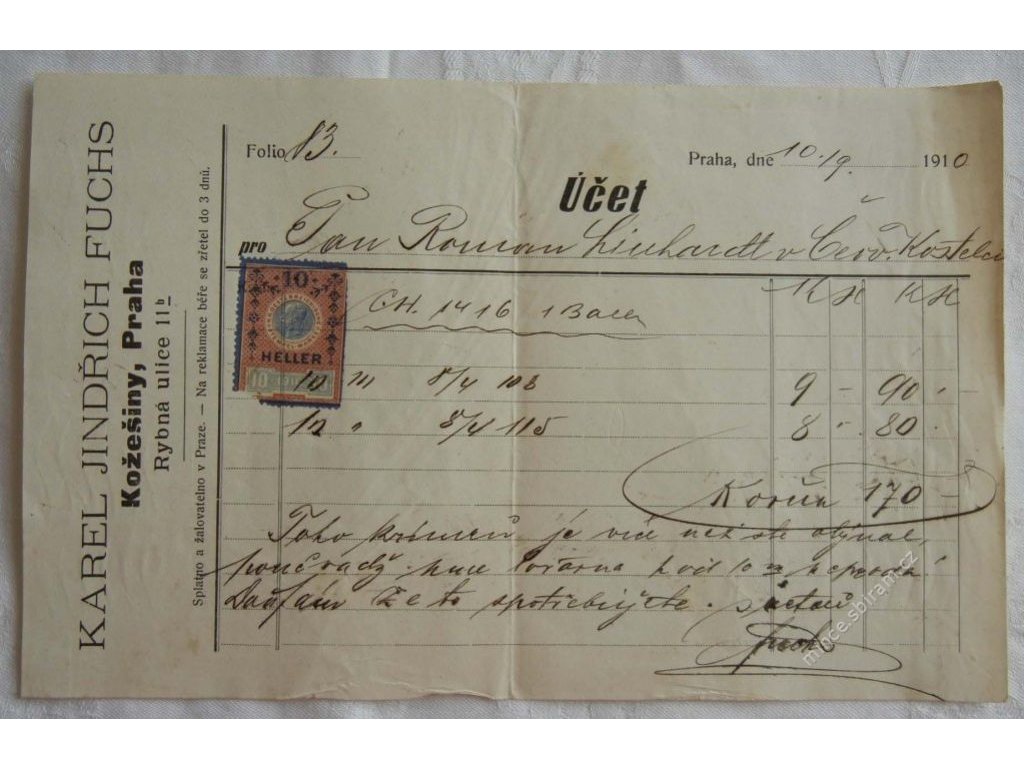 KAREL JINDŘICH FUCHS
Kožešiny, Praha
Rybná ulice 11b
Splatno a žalovatelno v Praze. — Na reklamace béře se zřetel do 3 dnů.
Folio 13.
Praha, dne 10./9. 1910
Účet
pro Pan Roman Linhardt v Červ. Kostelci
K H K H
10
HELLER
10
CH. 1416 1
10 m 8/4 108 9 — 90 . —
10 " 8/4 115 8 — 80 . —
Korun 170 —
Toho je víc než ste
10 m
že to spotřebujete.
Fuchs
mince.sbiram.cz